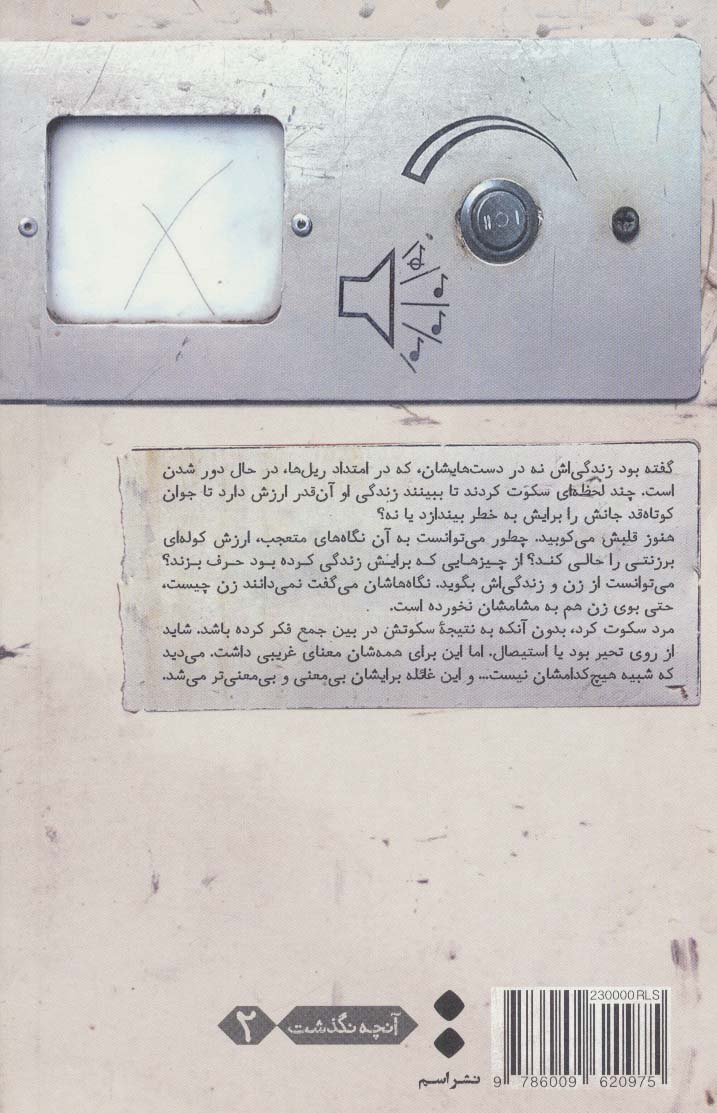 گفته بود زندگی‌اش نه در دست‌هایشان، که در امتداد ریل‌ها، در حال دور شدن
است. چند لحظه‌ای سکوت کردند تا ببینند زندگی او آن‌قدر ارزش دارد تا جوان
کوتاه‌قد جانش را برایش به خطر بیندازد یا نه؟
هنوز قلبش می‌کوبید. چطور می‌توانست به آن نگاه‌های متعجب، ارزش کوله‌ای
برزنتی را حالی کند؟ از چیزهایی که برایش زندگی کرده بود حرف بزند؟
می‌توانست از زن و زندگی‌اش بگوید. نگاهاشان می‌گفت نمی‌دانند زن چیست،
حتی بوی زن هم به مشامشان نخورده است.
مرد سکوت کرد، بدون آنکه به نتیجهٔ سکوتش در بین جمع فکر کرده باشد. شاید
از روی تحیر بود یا استیصال. اما این برای همه‌شان معنای غریبی داشت. می‌دید
که شبیه هیچ‌کدامشان نیست... و این غائله برایشان بی‌معنی و بی‌معنی‌تر می‌شد.
آنچه نگذشت ۲
نشر اسم
230000RLS
9 786009 620975